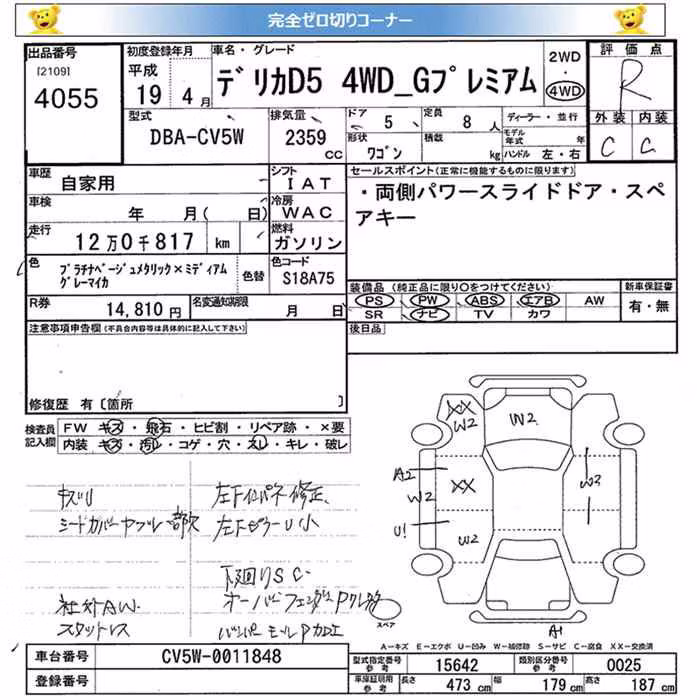 完全ゼロ切りコーナー
出品番号 [2109] 4055
初度登録年月 平成 19 4月
車名・グレード デリカD5 4WD_Gプレミアム
2WD ・ 4WD
評価点 R
外装 内装
C C
型式 DBA-CV5W
排気量 2359 CC
ドア 5
定員 8 人
形状 ワゴン
積載 kg
ディーラー・並行
モデル年式 年
ハンドル 左・右
車歴 自家用
シフト IAT
車検 年 月( 日)
冷房 WAC
走行 12万0千817 km
燃料 ガソリン
色 プラチナベージュメタリック×ミディアムグレーマイカ
色替
色コード S18A75
R券 14,810円
名変通知期限 月 日
セールスポイント(正常に機能するものに限ります)
・両側パワースライドドア・スペ
アキー
装備品(純正品に限り○をつけてください)
PS PW ABS エアB AW
SR ナビ TV カワ
新車保証書 有・無
後日品
注意事項申告欄(不具合内容等は具体的に記入して下さい)
修復歴 有〔箇所 〕
検査員記入欄
FW キズ・飛石・ヒビ割・リペア跡・×要
内装 キズ・汚れ・コゲ・穴・スレ・キレ・破レ
キズU
シートカバーヤブレ
左下 修正
左下ピラーU小
下廻りSC
社外AW.
スタットレス
オーバーフェンダー
バンパーモール
XX
W2
W2
A2
W2
XX
W2
U1
W2
A1
スペア
A=キズ E=エクボ U=凹み W=補修跡 S=サビ C=腐食 XX=交換済
車台番号 CV5W-0011848
登録番号
型式指定番号 参考 15642
類別区分番号 参考 0025
車庫証明用 参考 長さ 473 cm 幅 179 cm 高さ 187 cm